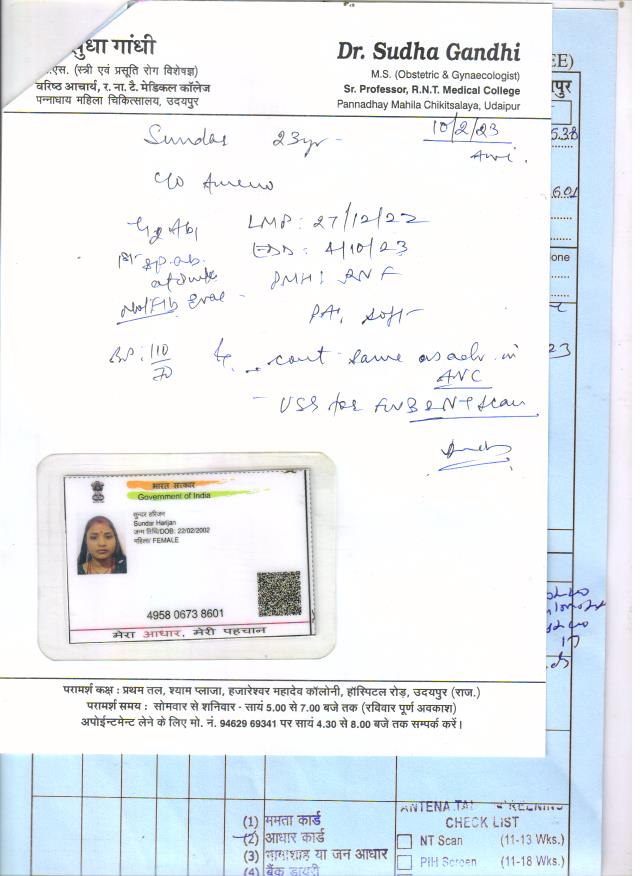 सुधा गांधी
एस. (स्त्री एवं प्रसूति रोग विशेषज्ञ)
वरिष्ठ आचार्य, र. ना. टै. मेडिकल कॉलेज
पन्नाधाय महिला चिकित्सालय, उदयपुर
Dr. Sudha Gandhi
M.S. (Obstetric & Gynaecologist)
Sr. Professor, R.N.T. Medical College
Pannadhay Mahila Chikitsalaya, Udaipur
EE)
पुर
one
Sundar 23yr
10/2/23
C/O Ameno
G2 Ab1
LMP: 27/12/22
EDD: 4/10/23
1st sp. ab.
PMH:
PA: soft
BP: 110/70
cont same as adv in
ANC
- USG for FWB & NT scan
23
भारत सरकार
Government of India
सुन्दर हरिजन
Sundar Harijan
जन्म तिथि/DOB: 22/02/2002
महिला/ FEMALE
4958 0673 8601
मेरा आधार, मेरी पहचान
परामर्श कक्ष : प्रथम तल, श्याम प्लाजा, हजारेश्वर महादेव कॉलोनी, हॉस्पिटल रोड़, उदयपुर (राज.)
परामर्श समय : सोमवार से शनिवार - सायं 5.00 से 7.00 बजे तक (रविवार पूर्ण अवकाश)
अपोईन्टमेन्ट लेने के लिए मो. नं. 94629 69341 पर सायं 4.30 से 8.00 बजे तक सम्पर्क करें।
(1) ममता कार्ड
(2) आधार कार्ड
(3) भामाशाह या जन आधार
(4) बैंक डायरी
CHECK LIST
NT Scan (11-13 Wks.)
PIH Screen (11-18 Wks.)